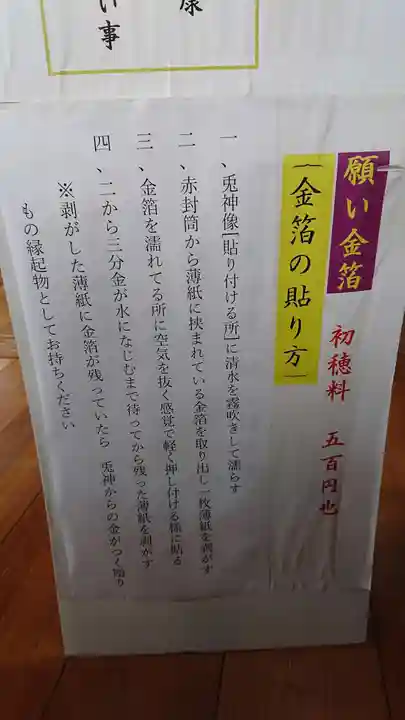 康
い事
願い金箔
初穂料 五百円也
(金箔の貼り方)
一、兎神像[貼り付ける所]に清水を霧吹きして濡らす
二、赤封筒から薄紙に挟まれている金箔を取り出し一枚薄紙を剥がす
三、金箔を濡れてる所に空気を抜く感覚で軽く押し付ける様に貼る
四、二から三分金が水になじむまで待ってから残った薄紙を剥がす
※剥がした薄紙に金箔が残っていたら 兎神からの金がつく賜り
もの縁起物としてお持ちください